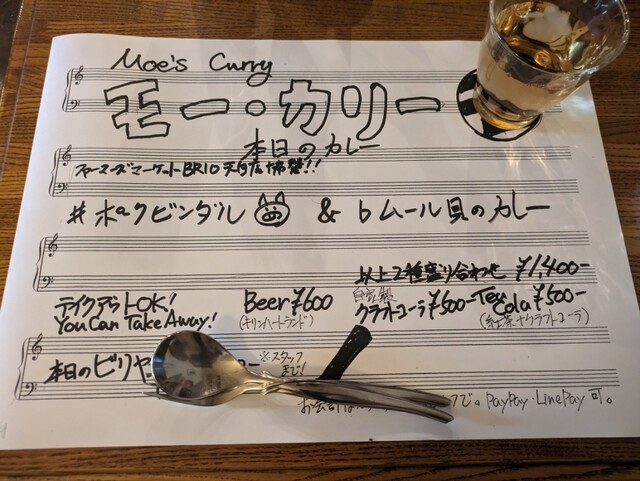 Moe's Curry
モー・カリー
本日のカレー
ファーマーズマーケットBRIO
♯ポークビンダル & ♭ムール貝のカレー
以上2種盛り合わせ ¥1,400-
テイクアウトOK!
You Can Take Away!
Beer ¥600
(キリンハートランド)
自家製
クラフトコーラ ¥500-
Tea Cola ¥500-
(紅茶×クラフトコーラ)
本日のビリヤ
※スタッフ
まで!
お会計は
で。PayPay・LinePay 可。